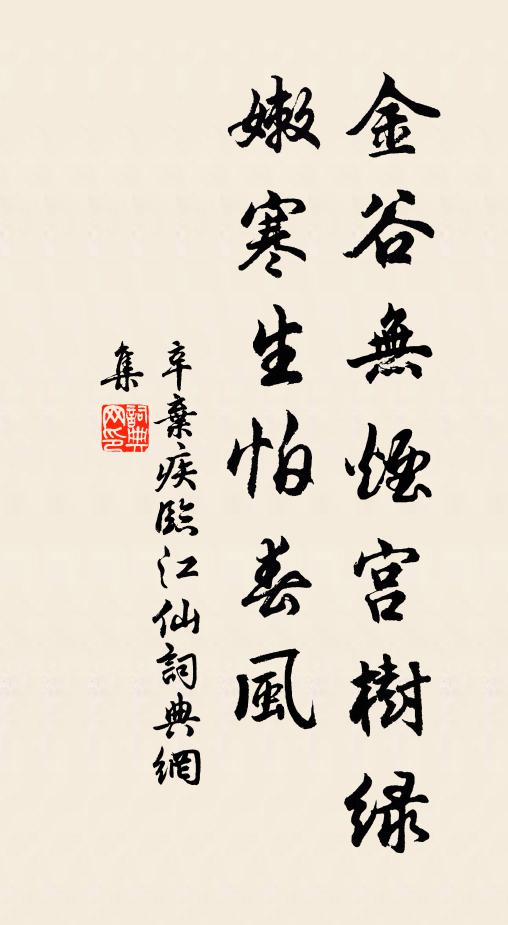 金谷無煙宮樹緑
嫩寒生怕春風
辛棄疾臨江仙詞典網
集
詞典網印